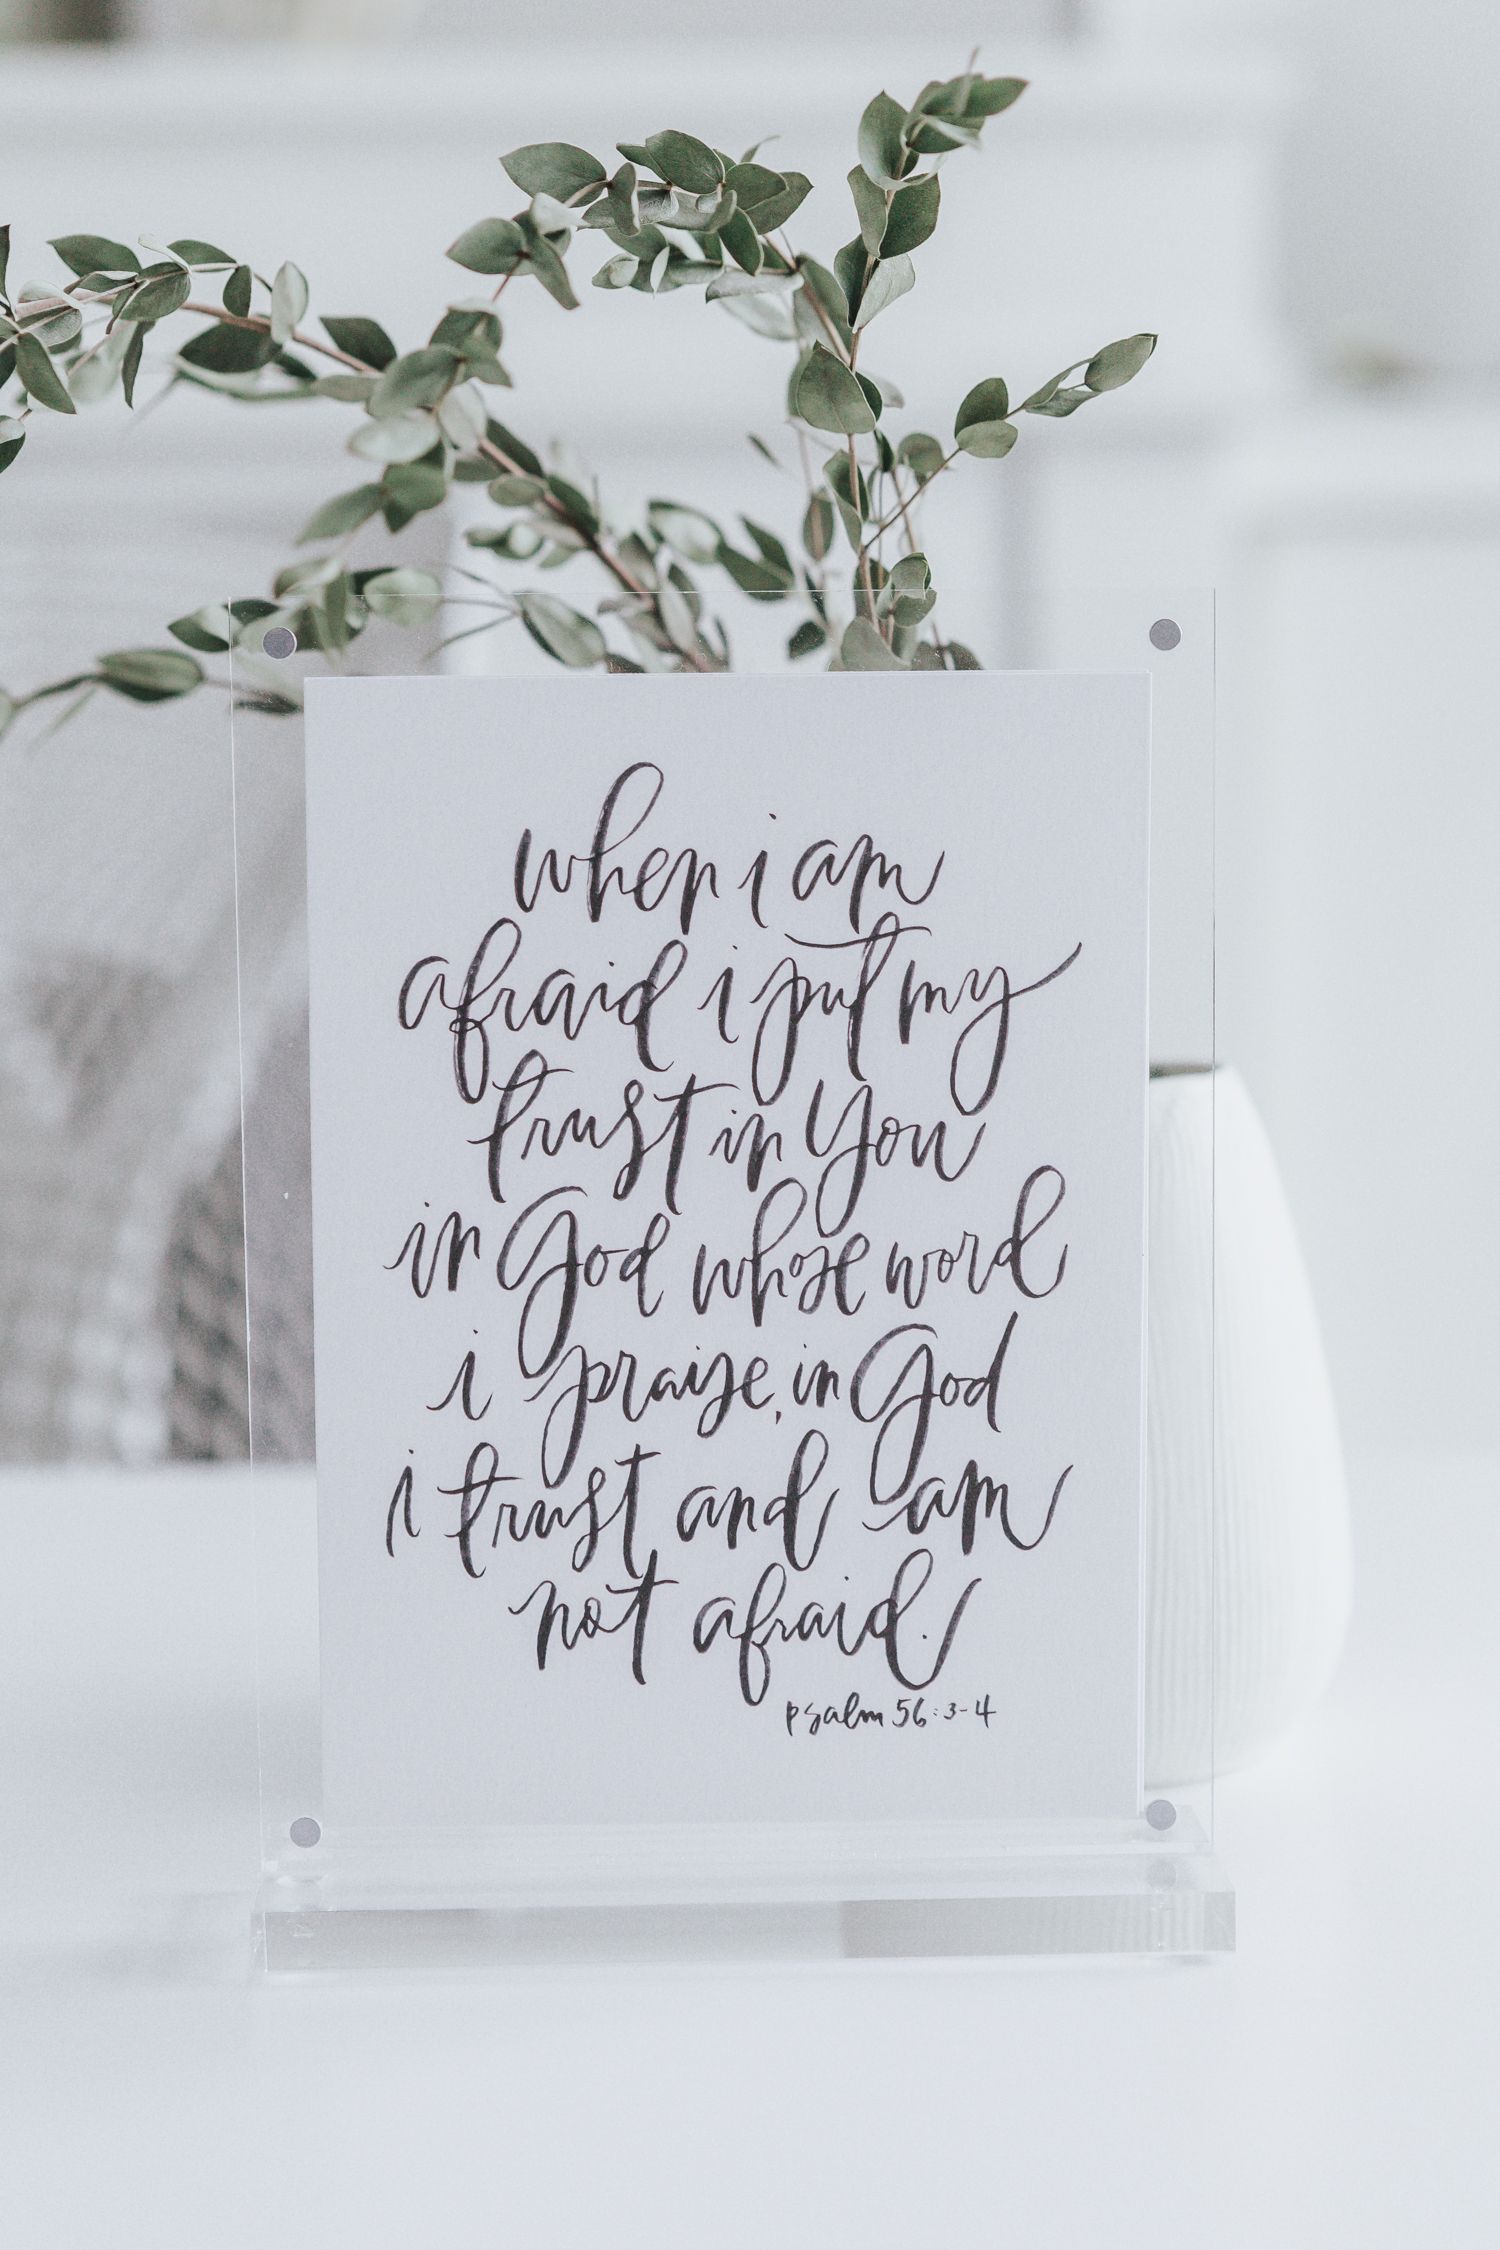 when i am
afraid i put my
trust in You
in God whose word
i praise, in God
i trust and am
not afraid.
psalm 56:3-4